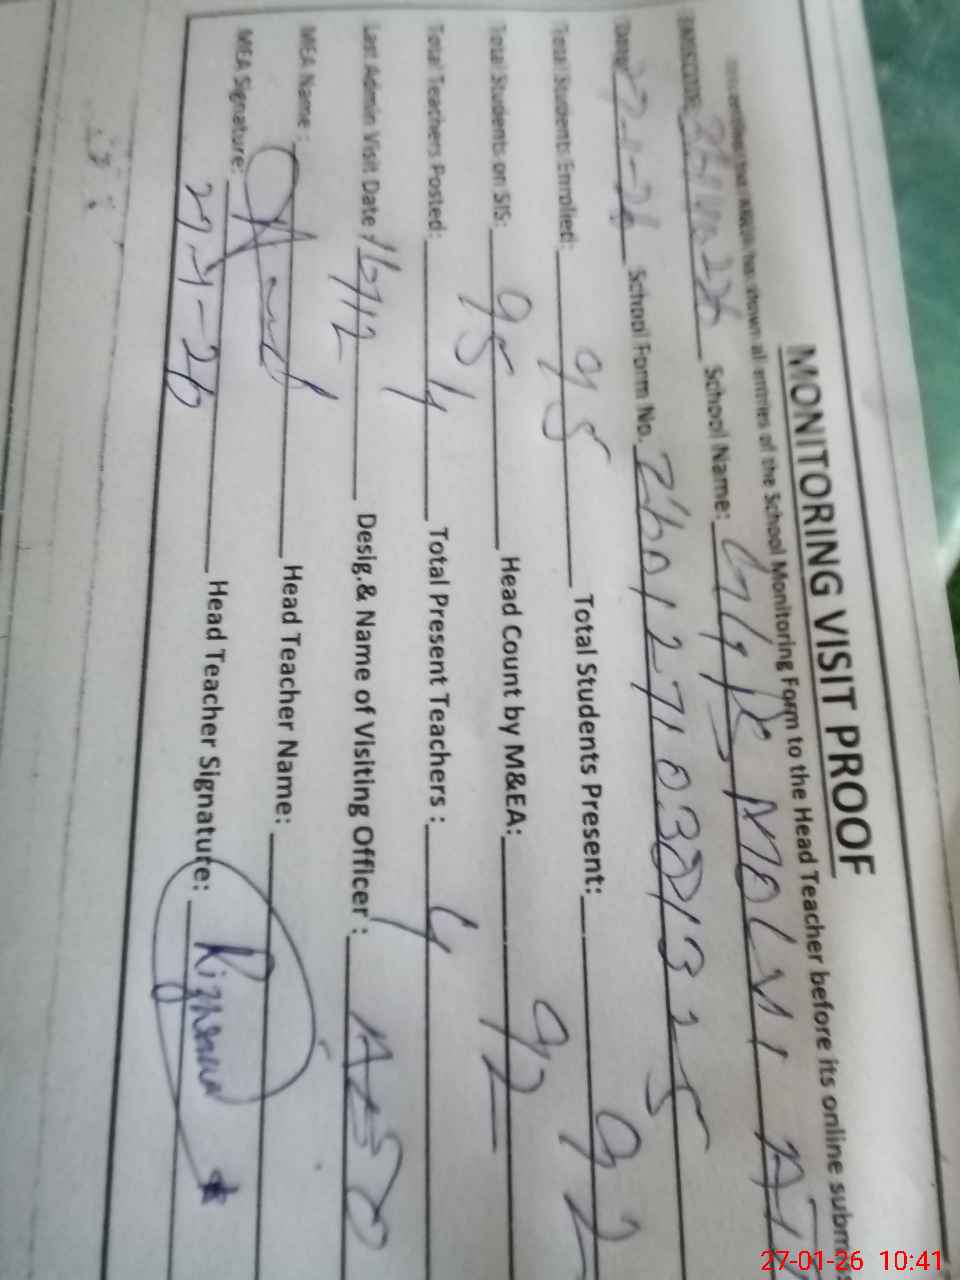 MONITORING VISIT PROOF
has shown all entries of the School Monitoring Form to the Head Teacher before its online
School Name:
Date: 27-1-26 School Form No. 2601271038
Total Students Enrolled: 95 Total Students Present: 92
Total Students on SIS: 95 Head Count by M&EA: 92
Total Teachers Posted: 4 Total Present Teachers : 4
Last Admin Visit Date : 16/12 Desig.& Name of Visiting Officer : AEO
MEA Name : Head Teacher Name:
MEA Signature: Head Teacher Signature: Rizwana
27-1-26
27-01-26 10:41